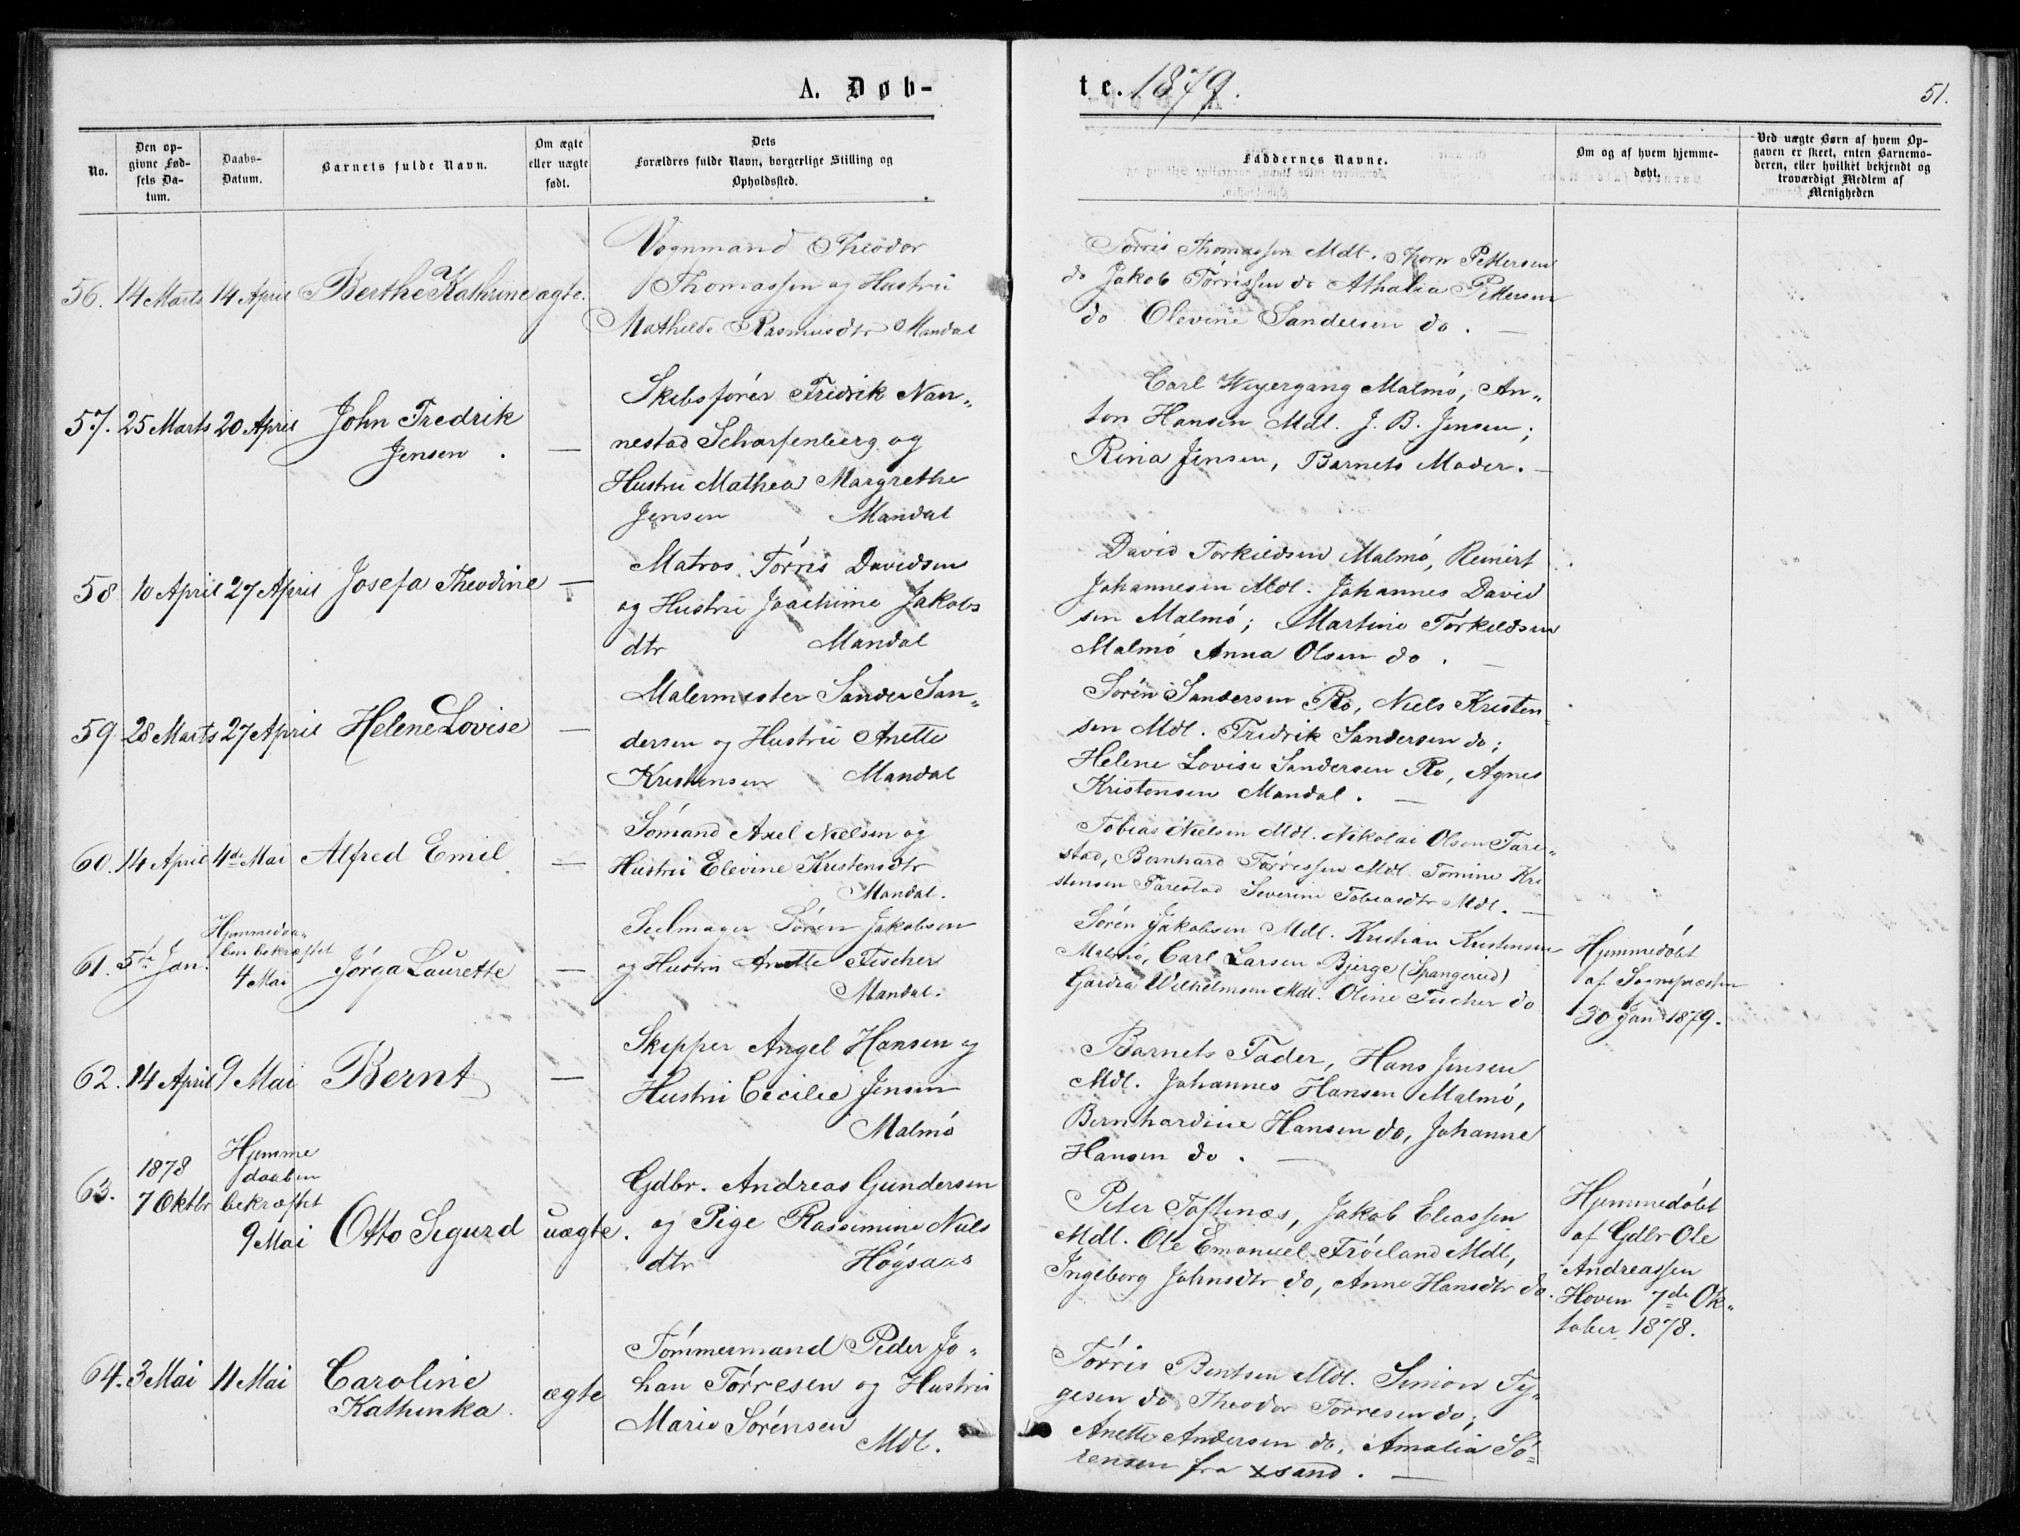 A. Døb-
te. 1879.
51.
No.
Den op-
givne Fød-
sels Da-
tum.
Daabs-
Datum.
Barnets fulde Navn.
Om ægte
eller uægte
født.
Dets
Forældres fulde Navn, borgerlige Stilling og
Opholdssted.
Faddernes Navne.
Om og af hvem hjemme-
døbt.
Ved uægte Børn af hvem Op-
gaven er skeet, enten Barnemo-
deren, eller hvilket bekjendt og
troværdigt Medlem af
Menigheden
56. 14 Marts 14 April Berthe Kathrine ægte.
Vognmand Theodor
Thomassen og Hustru
Mathilde Rasmusdtr Mandal
Tørris Thomassen Mdl. Thorn Pettersen
do Jakob Tørrissen do Athalia Pettersen
do Olevine Sandersen do. —
57. 25 Marts 20 April John Fredrik
Jensen. —
Skibsfører Fredrik Nan„
nestad Scharfenberg og
Hustru Mathea Margrethe
Jensen Mandal
Carl Weyergang Malmø, An„
ton Hansen Mdl. J. B. Jensen;
Rina Jensen, Barnets Moder. —
58 10 April 27 April Josefa Theodine —
Matros Tørris Davidsen
og Hustru Joachime Jakobs
dtr Mandal
David Torkildsen Malmø, Reinert
Johannesen Mdl. Johannes David
sen Malmø; Martine Torkildsen
Malmø Anna Olsen do. —
59. 28 Marts 27 April Helene Lovise —
Malermester Sander San„
dersen og Hustru Anette
Kristensen Mandal
Sørén Sandersen Ro, Niels Kristen„
sen Mdl. Fredrik Sandersen do;
Helene Lovise Sandersen Ro, Agnes
Kristensen Mandal. —
60. 14 April 4de Mai Alfred Emil —
Sømand Axel Nielsen og
Hustru Elevine Kristensdtr
Mandal.
Tobias Nielsen Mdl. Nikolai Olsen Fare„
stad, Bernhard Tørressen Mdl. Tomine Kri
stensen Farestad Severine Tobiasdtr Mdl. —
61. 5te Jan.
Hjemmedaa„
ben bekræftet
4 Mai
Jørga Laurette —
Seilmager Søren Jakobsen
og Hustru Anette Fischer
Mandal.
Sørén Jakobsen Mdl. Kristian Kristensen
Malmø, Carl Larsen Bjerge (Spangereid)
Gardia Wilhelmsen Mdl. Oline Fischer do
Hjemmedøbt
af Sognepræsten
30 Jan 1879.
62. 14 April 9 Mai Bernt —
Skipper Angel Hansen og
Hustru Cecilie Jensen
Malmø
Barnets Fader, Hans Jensen
Mdl. Johannes Hansen Malmø,
Bernhardine Hansen do, Johanne
Hansen do. —
63.
1878
7 Oktbr
Hjemme
daaben
bekræftet
9 Mai
Otto Sigurd uægte.
Gdbr. Andreas Gundersen
og Pige Rassemine Niels
dtr Høgsaas
Peter Toftenæs, Jakob Eliassen
Mdl. Ole Emanuel Frøiland Mdl,
Ingeborg Johnsdtr do, Anne Hansdtr do.
Hjemmedøbt
af Gdbr Ole
Andreassen
Hoven 7de Ok„
tober 1878.
64. 3 Mai 11 Mai Caroline
Kathinka. ægte
Tømmermand Peder Jo„
han Tørresen og Hustru
Marie Sørensen
Mdl.
Tørris Bentsen Mdl. Simon Ty„
gesen do Theodor Torresen do;
Anette Andersen do, Amalia Sø„
rensen fra xsand. —